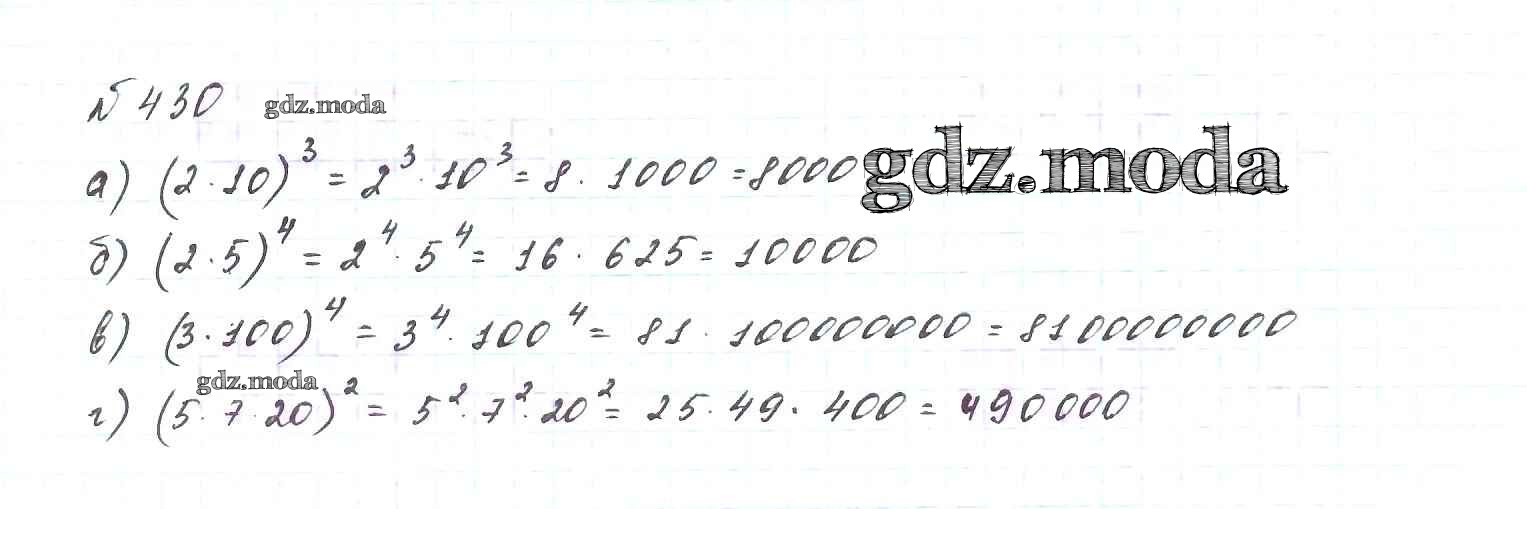 № 430 gdz.moda
а) (2·10)³ = 2³·10³ = 8·1000 = 8000 gdz.moda
б) (2·5)⁴ = 2⁴·5⁴ = 16·625 = 10000
в) (3·100)⁴ = 3⁴·100⁴ = 81·100000000 = 8100000000
gdz.moda
г) (5·7·20)² = 5²·7²·20² = 25·49·400 = 490000